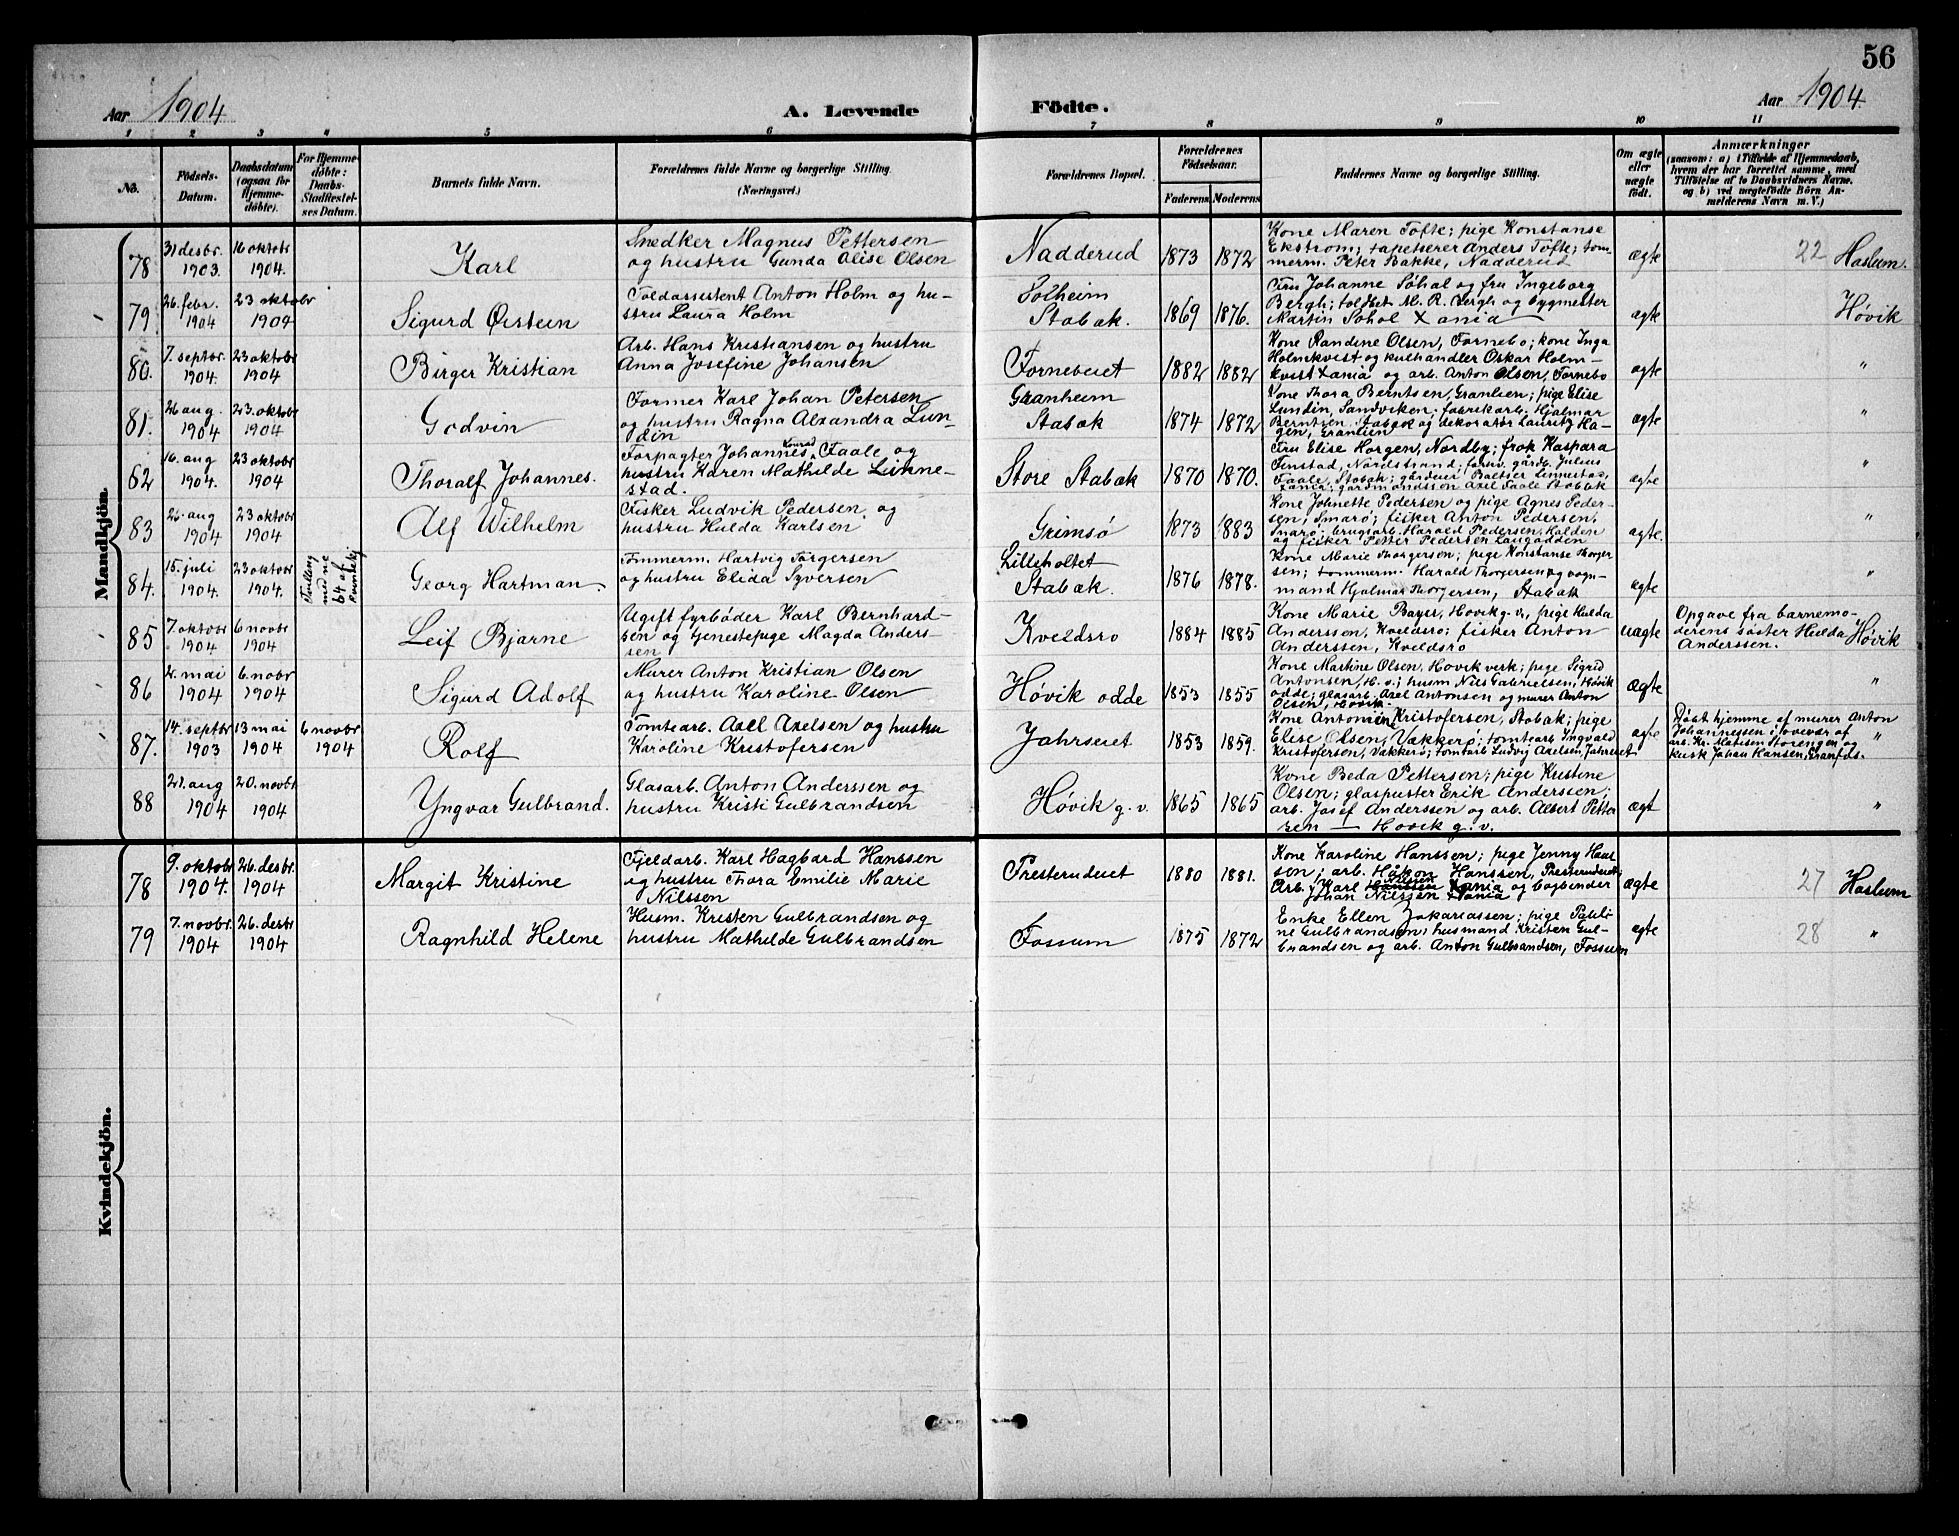 56
Aar 1904
A. Levende
Fødte.
Aar 1904
1 2 3 4 5 6 7 8 9 10 11
No.
Fødsels-
Datum.
Daabsdatum
(ogsaa for
Hjemme-
døbte).
For Hjemme-
døbte:
Daabs-
Stadfæstel-
ses Datum.
Barnets fulde Navn.
Forældrenes fulde Navne og borgerlige Stilling
(Næringsvei.)
Forældrenes Bopæl.
Forældrenes
Fødselsaar.
Faderens. Moderens.
Faddernes Navne og borgerlige Stilling.
Om ægte
eller
uægte
født.
Anmærkninger
(saasom: a) i Tilfælde af Hjemmedaab,
hvem der har forrettet samme, med
Tilføielse af to Daabsvidners Navne,
og b) ved uægtefødte Børn An-
melderens Navn m. V.)
Mandkjön.
78
31 desbr
1903.
16 oktobr
1904.
Karl
Snedker Magnus Pettersen
og hustru Gunda Alise Olsen
Nadderud
1873 1872
Kone Maren Tofte; pige Konstanse
Ekstrom; tapetserer Anders Tofte; tom-
merm. Peter Bakke, Nadderud
ægte
22 Haslum.
79
26 febr.
1904
23 oktobr
1904
Sigurd Øistein
Toldassistent Anton Holm og hu-
stru Laura Holm
Solheim
Stabæk.
1869 1876.
Fru Johanne Søhol og fru Ingeborg
Bergh; toldbet. M. R. Bergh og bygmester
Martin Sohol Xania
ægte
Høvik
80.
7. septbr
1904.
23 oktobr
1904
Birger Kristian
Arb. Hans Kristiansen og hustru
Anna Josefine Johansen
Forneberet
1882 1882
Kone Randine Olsen, Fornebo; kone Inga
Holmkvest og kulhandler Oskar Holm-
kvest Xania og arb. Anton Olsen, Fornebo
ægte
"
81.
26 aug.
1904
23. oktobr
1904
Godvin
Former Karl Johan Petersen
og hustru Ragna Alexandra Lun-
din
Granheim
Stabæk
1874 1872
Kone Thora Berntsen, Granlien; pige Elise
Lundin, Sandviken; fabrikarb. Hjalmar
Berntsen, Stabæk og dekoratør Lauritz Ha-
gen, Granlien
ægte
"
82
16. aug
1904.
23 oktobr
1904
Thoralf Johannes.
Forpagter Johannes Konrad Faale og
hustru Karen Mathilde Linne-
stad.
Store Stabæk
1870 1870.
Fru Elise Horgen, Nordby; frøk Kaspara
Finstad, Nordstrand; forhv. gårdb. Julius
Faale, Stabæk; gårdeier Baltser Linnestad,
Xania; gårdmandssøn Axel Faale Stabæk
ægte
"
83
26 aug
1904
23 oktobr
1904
Alf Wilhelm
Fisker Ludvik Pedersen og
hustru Hulda Karlsen
Grimsø
1873 1883
Kone Johnette Pedersen og pige Agnes Peder-
sen, Snarø; fisker Anton Pedersen,
Snarø; brugsarb. Harald Pedersen, Halden
og fisker Petter Pedersen Langodden
ægte.
"
84.
15. juli
1904.
23 oktobr
1904.
Tvilling
med ne
64 af
Kvindekj
Georg Hartman.
Tømmerm. Hartvig Torgersen
og hustru Elida Syversen
Lilleholtet
Stabæk.
1876 1878.
Kone Marie Thorgersen; pige Konstanse Thorger
sen; tømmerm. Harald Thorgersen og vogn-
mand Hjalmar Thorgersen, Stabæk
ægte
"
85
7. oktobr
1904
6 novbr
1904
Leif Bjarne
Ugift fyrbøder Karl Bernhard-
sen og tjenestepige Magda Anders-
sen
Kveldsro
1884 1885
Kone Marie Bayer, Høvik g. v., pige Hulda
Anderssen, Kveldsro; fisker Anton
Anderssen, Kveldsro
uægte
Opgave fra barnemo-
derens søster Hulda
Anderssen.
Høvik
86
2. mai
1904
6. novbr
1904
Sigurd Adolf
Murer Anton Kristian Olsen
og hustru Karoline Olsen
Høvik odde
1853 1855
Kone Martine Olsen, Høvik verk; pige Sigrid
Antonsen, H. o.; husm Nils Gabrielsen, Høvik
odde; glasarb. Axel Antonsen og murer Anton
Olsen, Høvik.
Ægte
"
87.
14. septbr
1903
13 mai
1904
6 novbr
1904
Rolf
Tomtearb. Axel Axelsen og hustru
Karoline Kristofersen
Jahrseiet
1853 1859.
Kone Antonine Kristofersen, Stabæk; pige
Elise Olsen, Vækkerø; tomtearb Yngvald
Kristofersen, Vækkerø; tomtarb Ludvig Axelsen, Jahrseiet
ægte
Døbt hjemme af murer Anton
Johannessen i overvær af
arb. Kr. Mathisen Storengen og
kusk Johan Hansen, Granfos.
"
88
21. aug
1904
20. novbr
1904
Yngvar Gulbrand.
Glasarb. Anton Anderssen og
hustru Kristi Gulbrandsen
Høvik g. v.
1865 1865
Kone Beda Pettersen; pige Kristine
Olsen; glaspuster Erik Anderssen;
arb. Josef Anderssen og arb. Albert Petter
sen — Høvik g. v.
ægt
"
Kvindekjön.
78
9. oktobr
1904.
26. desbr.
1904
Margit Kristine
Fjeldarb. Karl Hagbard Hanssen
og hustru Thora Emilie Marie
Nilssen
Presterudeiet
1880 1881.
Kone Karoline Hanssen; pige Jenny Hans
sen; arb. Håkon Hanssen, Presterudeiet;
Arb. Karl Hanssen Xania og bogbinder
Johan Nilssen Xania
ægte
27 Haslum
79
7. novbr.
1904
26. desbr
1904
Ragnhild Helene
Husm. Kristen Gulbrandsen og
hustru Mathilde Gulbrandsen
Fossum
1875 1872
Enke Ellen Jakariassen; pige Pauli-
ne Gulbrandsen; husmand Kristen Gul-
brandsen og arb. Anton Gulbrandsen, Fossum
ægte
28 "